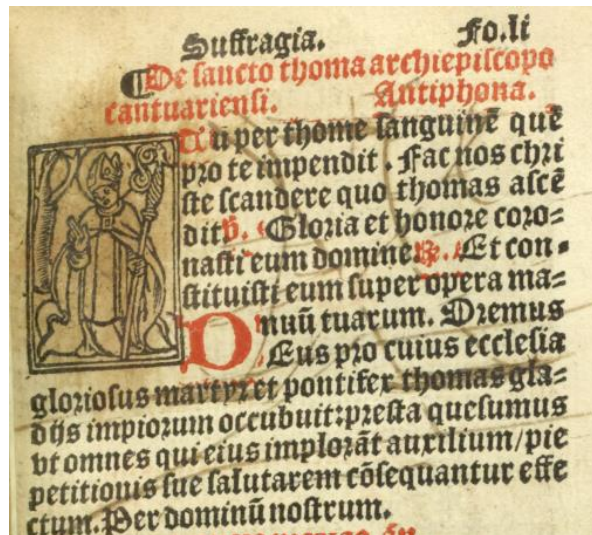 Suffragia. Fo.li
¶De sancto thoma archiepiscopo
cantuariensi. Antiphona.
Tu per thome sanguinē quē
pro te impendit. Fac nos chri
ste scandere quo thomas ascē
dit ꝟ. Gloria et honore coro=
nasti eum domine. ℟. Et con=
stituisti eum super opera ma=
nuū tuarum. Oremus
DEus pro cuius ecclesia
gloriosus martyr et pontifex thomas gla=
dijs impiorum occubuit: presta quesumus
vt omnes qui eius implorāt auxilium/pie
petitionis sue salutarem cōsequantur effe
ctum. Per dominū nostrum.